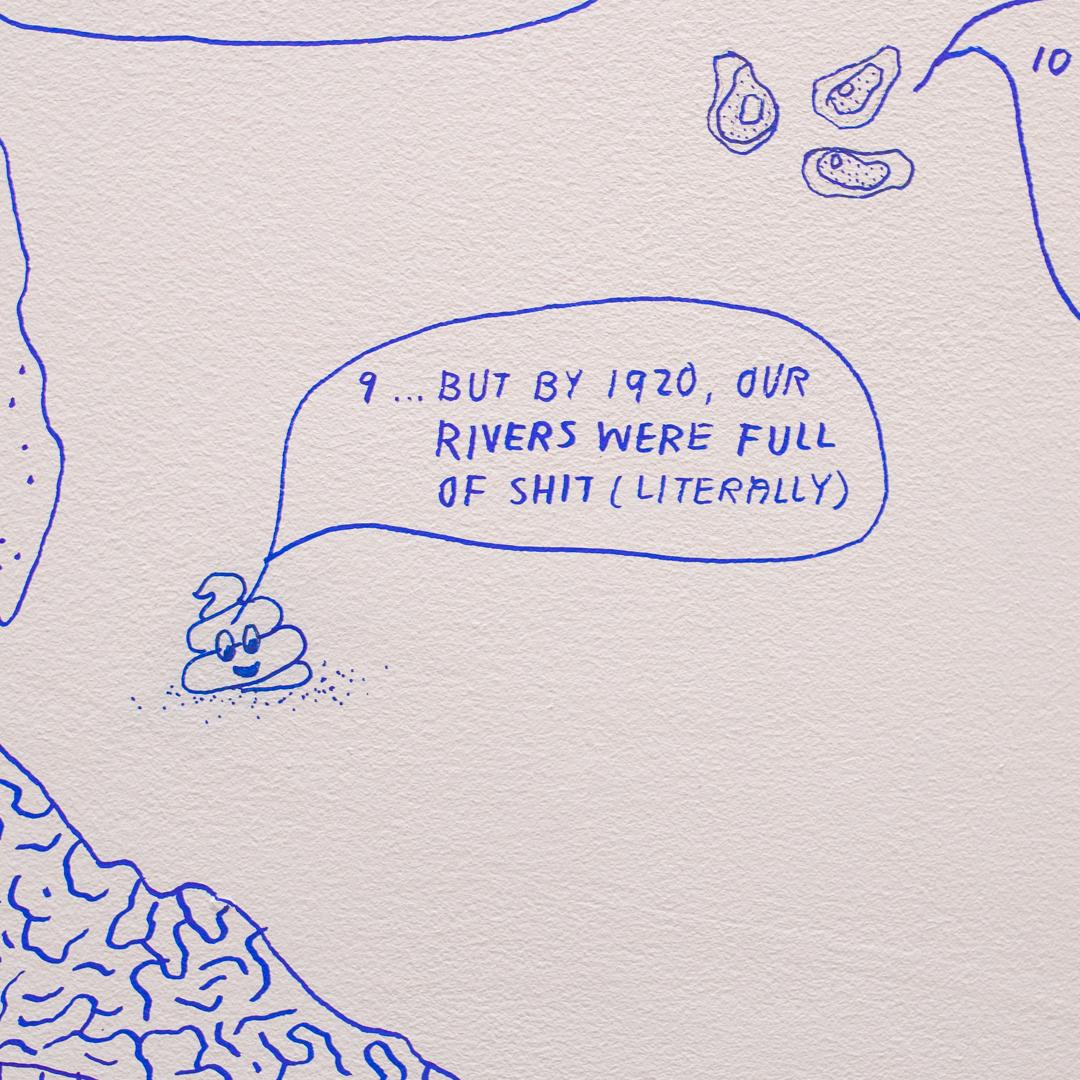 10
9... BUT BY 1920, OUR
RIVERS WERE FULL
OF SHIT (LITERALLY)